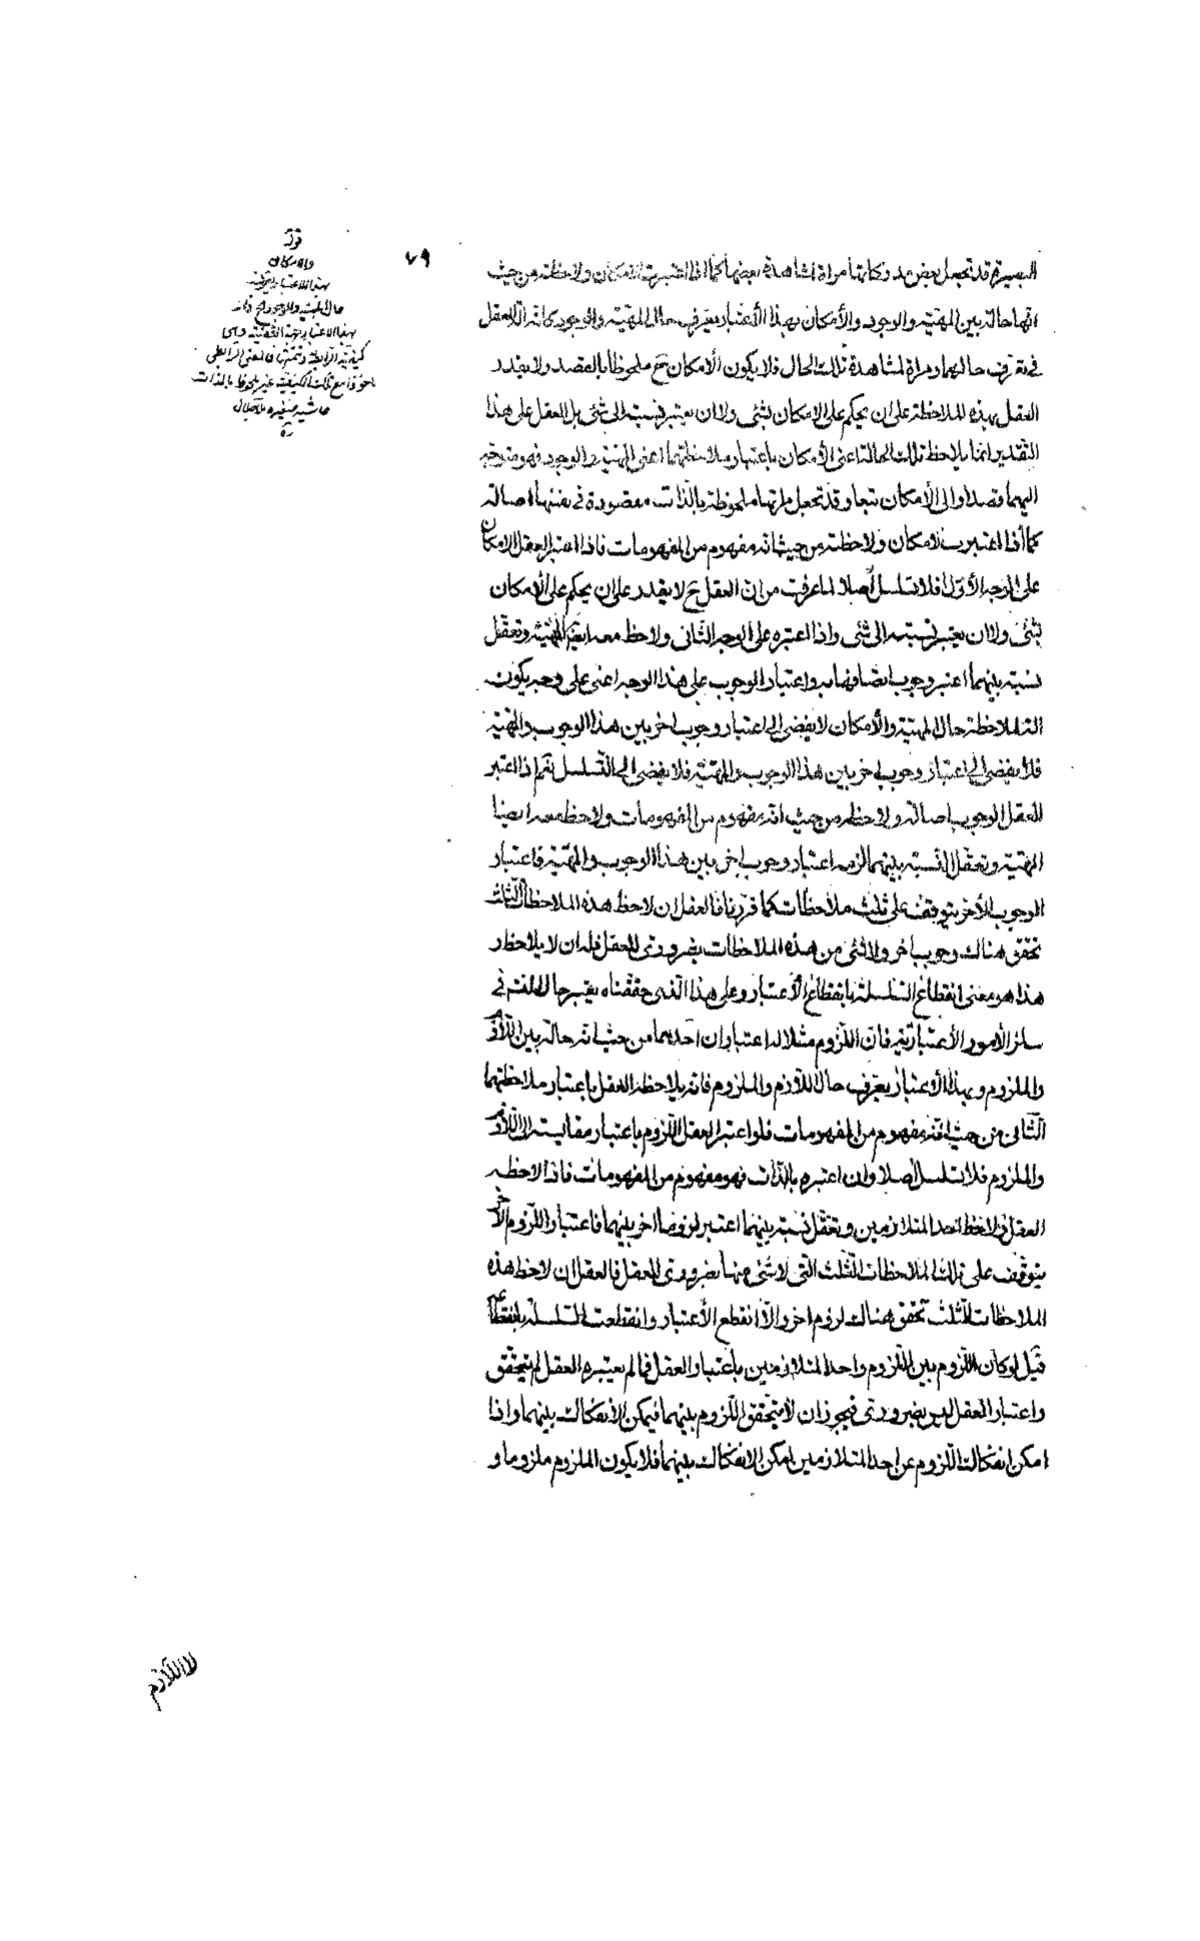 ٧٩
البصيرة قد تجعل بعض مدركاتها مراة لمشاهدة بعضها كما اذا اعتبرت الامكان ولاحظته من حيث
انها حالة بين المهيّة والوجود والأمكان بهذا الأعتبار يعرف حال المهيّة والوجود كانه الة للعقل
فى تعرف حالهما ومراة لمشاهدة تلك الحال فلا يكون الامكان ح ملحوظا بالقصد ولا يقدر
العقل بهذه الملاحظة على ان يحكم على الامكان بشئ ولا ان يعتبر نسبته الى شئ بل العقل على هذا
التقدير انما يلاحظ تلك الحالة اعنى الأمكان باعتبار ملاحظتهما اعنى المهيّة والوجود فهو متوجه
اليهما قصدا والى الأمكان تبعا وقد تجعل مراتها ملحوظة بالذات مقصودة فى نفسها اصالة
كما أذا اعتبرت الامكان ولاحظته من حيث انه مفهوم من المفهومات فاذا اعتبر العقل الامكان
على الوجه الأوّل فلا تسلسل أصلا لما عرفت من انّ العقل ح لا يقدر على ان يحكم على الأمكان
بشئ ولا ان يعتبر نسبته الى شئ واذا اعتبره على الوجه الثانى ولاحظ معه ايضا المهيّة وتعقّل
نسبته بينهما اعتبر وجوب اتصافها به واعتبار الوجوب على هذا الوجه اعنى على وجه يكون
الة لملاحظة حال المهيّة والأمكان لا يفضى الى اعتبار وجوب اخر بين هذا الوجوب والمهيّة
فلا يفضى الى اعتبار وجوب اخر بين هذا الوجوب والمهيّة فلا يفضى الى التّسلسل نعم اذا اعتبر
العقل الوجوب اصالة ولاحظه من حيث انه مفهوم من المفهومات ولاحظ معه ايضا
المهيّة وتعقّل النسبة بينهما لزمه اعتبار وجوب اخر بين هذا الوجوب والمهيّة فاعتبار
الوجوب الأخر يتوقف على ثلث ملاحظات كما قررنا فالعقل ان لاحظ هذه الملاحظات الثلث
تحقق هناك وجوب اخر ولا شئ من هذه الملاحظات بضرورى للعقل فله ان لا يلاحظ
هذا هو معنى انقطاع السّلسلة بانقطاع الأعتبار وعلى هذا الّذى حققناه يعتبر حال
سائر الأمور الأعتباريّة فانّ اللّزوم مثلا له اعتباران احدهما من حيث انه حالة بين اللّازم
والملزوم وبهذا الأعتبار يعرف حال اللّازم والملزوم فانه يلاحظه العقل باعتبار ملاحظتهما
الثّانى من حيث انّه مفهوم من المفهومات فلو اعتبر العقل اللّزوم باعتبار مقايسته الى اللّازم
والملزوم فلا تسلسل أصلا وان اعتبره بالذّات فهو مفهوم من المفهومات فاذا لاحظه
العقل ولاحظ احد المتلازمين وتعقّل نسبته بينهما اعتبر لزوما اخر بينهما فاعتبار اللّزوم الأخر
يتوقّف على تلك الملاحظات الثّلث الّتى لا شئ منها بضرورى للعقل فالعقل ان لاحظ هذه
الملاحظات الثّلث تحقق هناك لزوم اخر والّا انقطع الأعتبار وانقطعت السّلسلة بانقطاعه
قيل لو كان اللّزوم بين اللّزوم واحد المتلازمين باعتبار العقل فما لم يعتبره العقل لم يتحقّق
واعتبار العقل ليس بضرورى فيجوز ان لا يتحقّق اللّزوم بينهما فيمكن الأنفكاك بينهما واذا
امكن انفكاك اللّزوم عن احد المتلازمين امكن الانفكاك بينهما فلا يكون الملزوم ملزوما و
قوله
والامكان
بهذا الاعتبار يعرف
حال المهيّة والوجود
بهذا الاعتبار جهة القضيّة
كيفيّة الرّابطة
غير ملحوظ بالذات
لا اللّازم